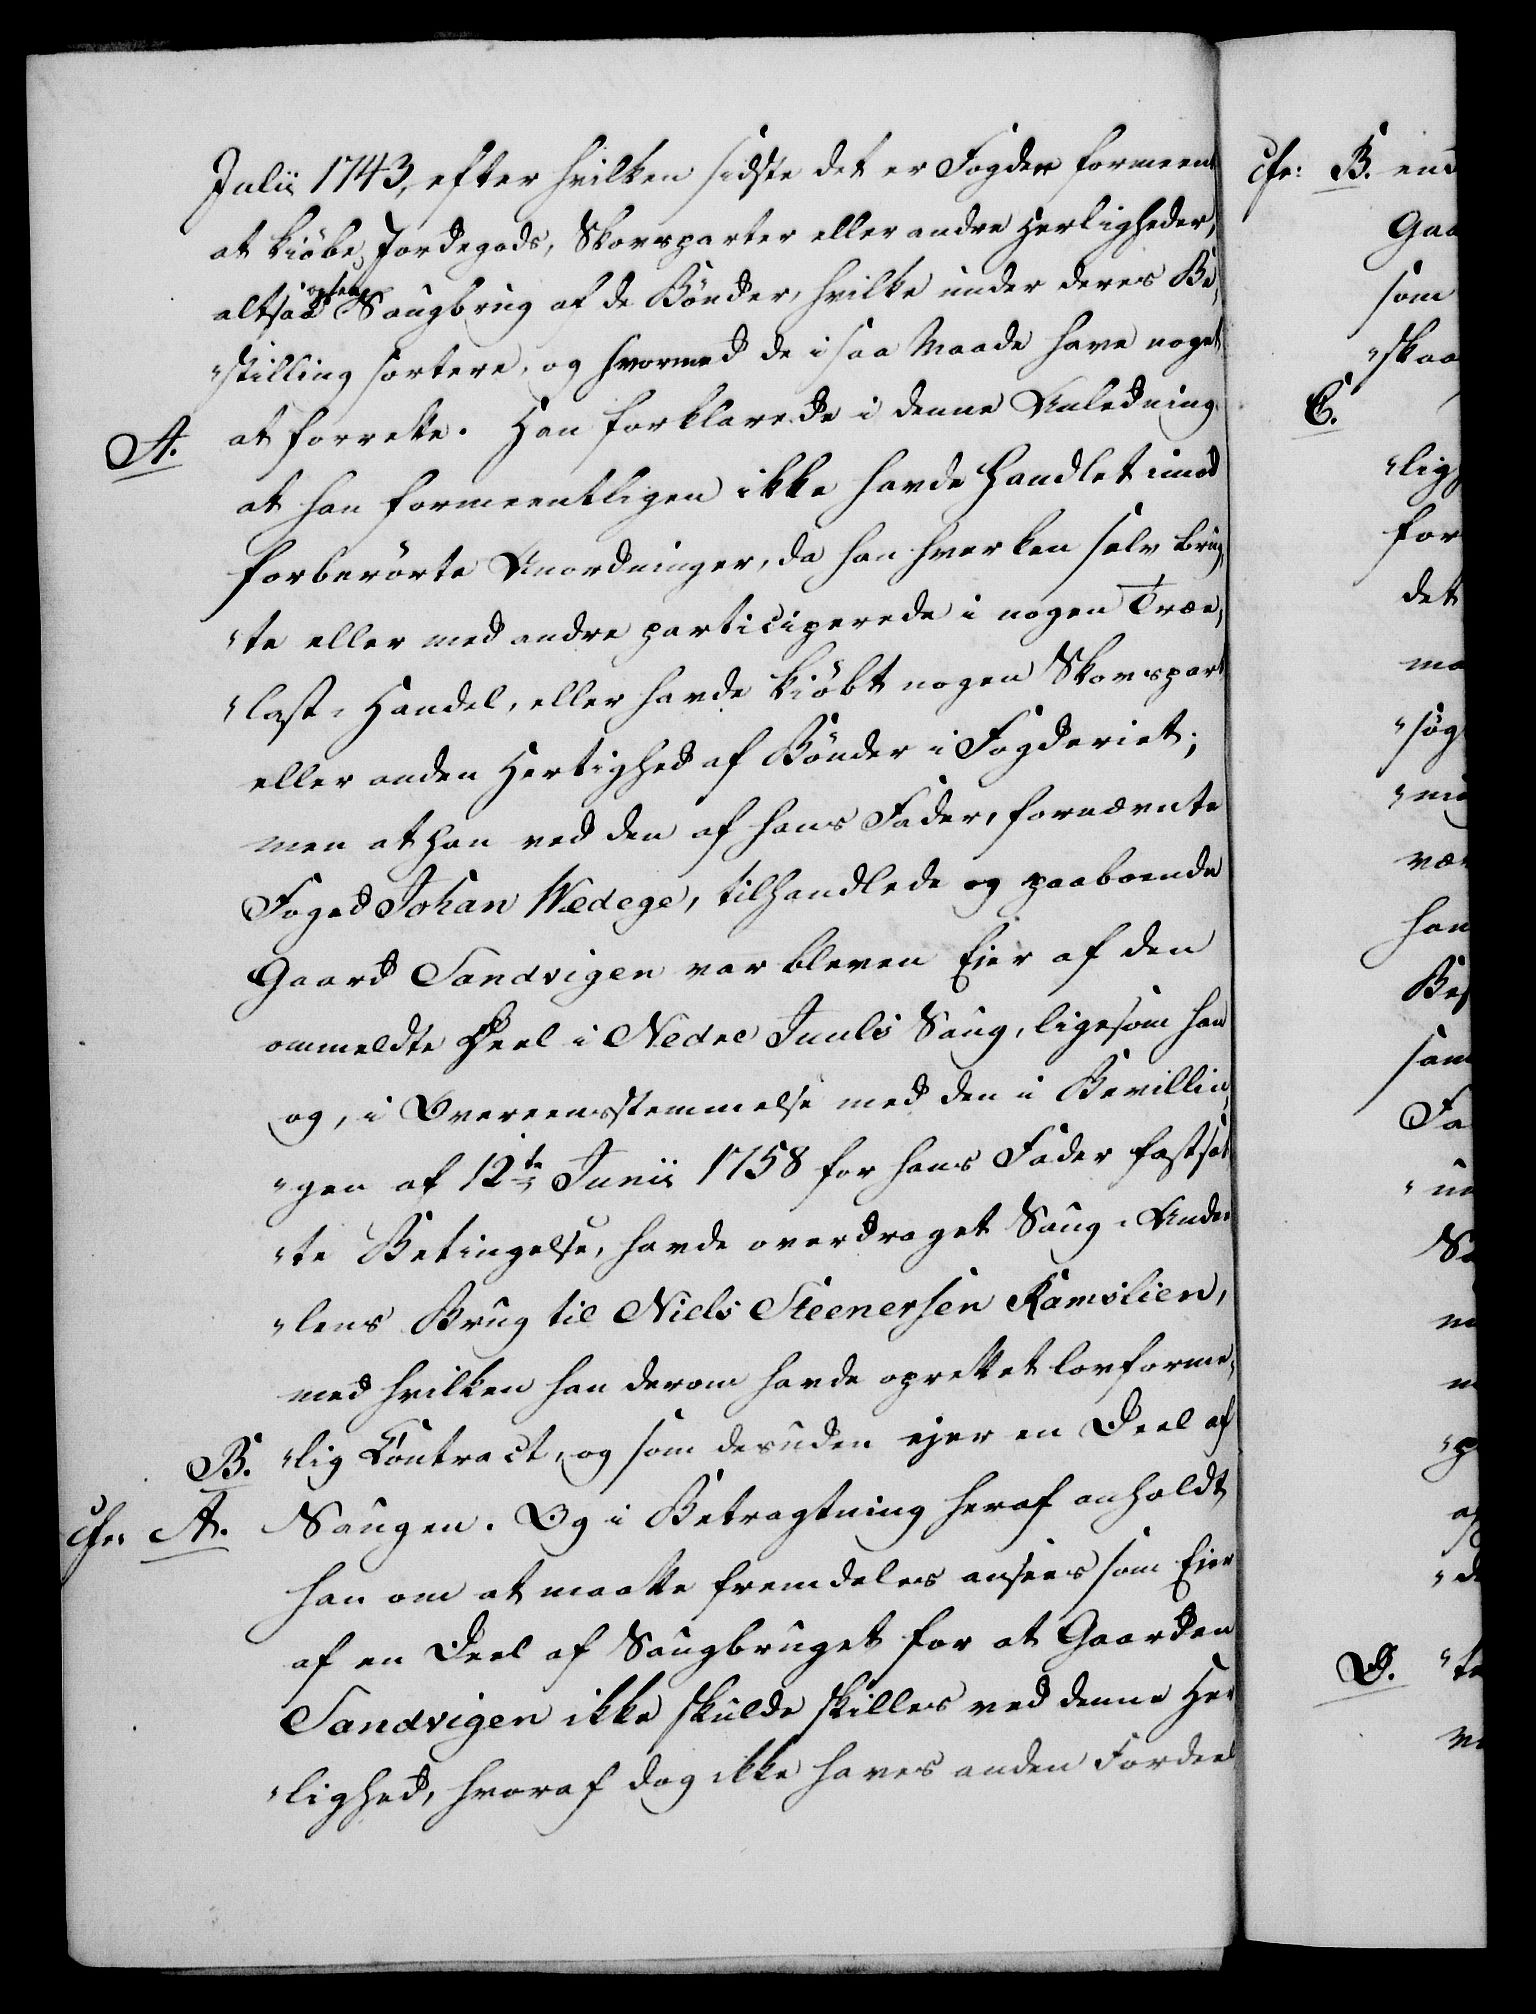 Julii 1743, efter hvilken sidste det er Fogder formeent
at kiöbe Jordegods, Skovsparter eller andre Herligheder,
altsaa ogsaa Saugbrug af de Bönder, hvilke under deres Be„
„stilling sortere, og hvormed de i saa Maade have noget
A. at forrette. Han forklarede i denne Anledning
at han formeentligen ikke havde Handlet imod
forberörte Anordninger, da han hverken selv brug„
„te eller med andre participerede i nogen Træe„
„last-Handel, eller havde kiöbt nogen Skovspart
eller anden Hertighed af Bönder i Fogderiet;
men at han ved den af hans Fader, fornævnte
Foged Johan Wedege, tilhandlede og paaboende
Gaard Sandvigen var bleven Eier af den
ommeldte Deel i Nedre Juuls Saug, ligesom han
og, i Overeensstemmelse med den i Bevillin„
„gen af 12te Junii 1758 for hans Fader fastsat
„te Betingelse, havde overdraget Saug-Ande„
„lens Brug til Niels Steenersen Ramslien,
med hvilken han derom havde oprettet lovforme„
B. „lig Contract, og som desuden ejer en Deel af
cfr: A. Saugen. Og i Betragtning heraf anholdt
han om at maatte fremdeles ansees som Eier
af en Deel af Saugbruget for at Gaarden
Sandvigen ikke skulde skilles ved denne Her
„lighed, hvoraf dog ikke haves anden Fordeel
cfr: B. end
Gaa
som
„skaa
C.
„lig
for
det
ma
„søg
vær
han
Bes
sam
Fa
D.